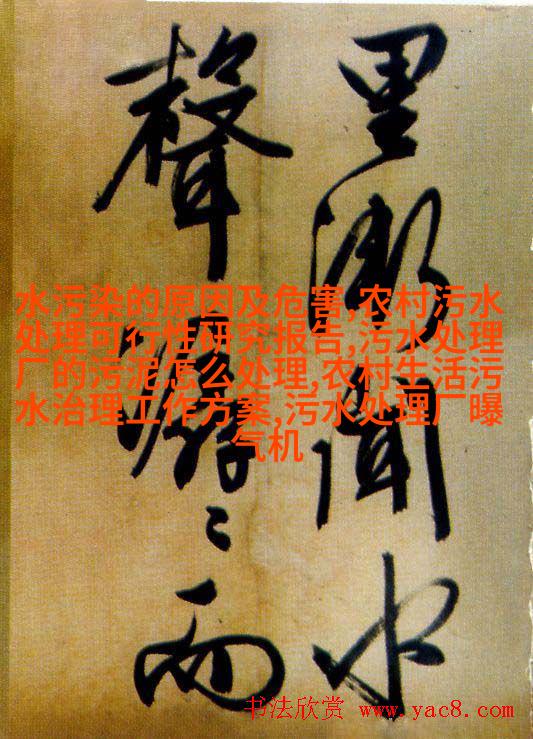 里漸聞水
聲潺〻而
水污染的原因及危害,农村污水
处理可行性研究报告,污水处理
厂的污泥怎么处理,农村生活污
水治理工作方案,污水处理厂曝
气机
书法欣赏 www.yac8.com